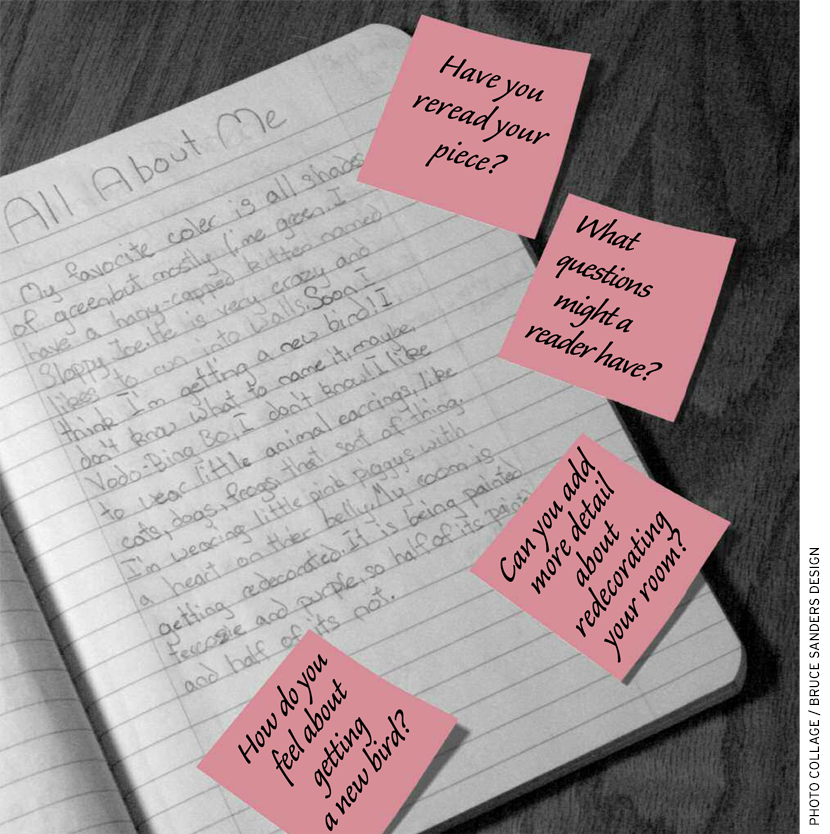 All About Me
My favorite coler is all shades
of green but mostly lime green. I
have a handy-capped kitten named
Sloppy Joe. He is very crazy and
likes to run into walls. Soon I
think I'm getting a new bird! I
don't know what to name it, maybe
Bo, I don't know! I like
to wear little animal earrings, like
cats, dogs, frogs that sort of thing.
I'm wearing little pink piggys with
a heart on ther belly. My room is
getting redecorated. It is being painted
and purple, so half of its paint
and half of its not.
Have you
reread your
piece?
What
questions
might a
reader have?
Can you add
more detail
about
redecorating
your room?
How do you
feel about
getting
a new bird?
PHOTO COLLAGE / BRUCE SANDERS DESIGN